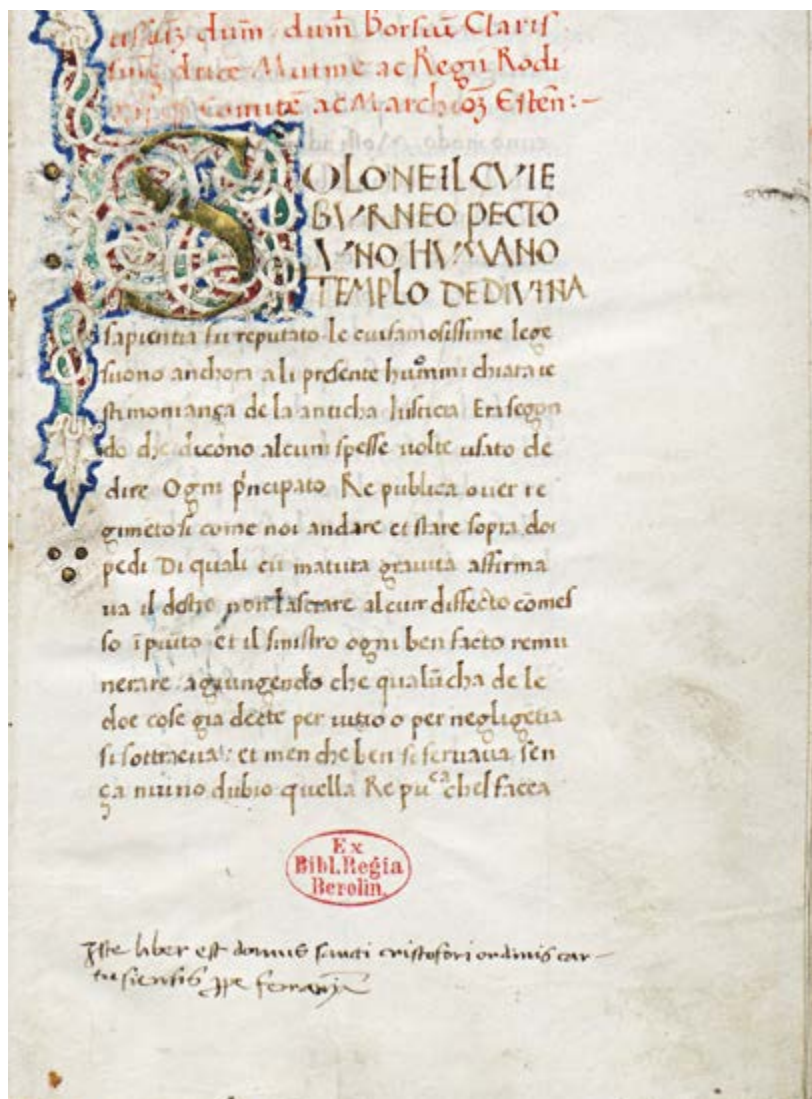 dum dum Borsiu Claris
duce Mutine ac Regii Rodi
Comite ac Marchioz Esten:-
SOLONE IL CVI E
BVRNEO PECTO
VNO HVMANO
TEMPLO DE DIVINA
sapientia fu reputato le cui famosissime lege
suono anchora a li presente huomini chiara te
stimoniança de la anticha Iusticia Era segon
do che dicono alcuni spesse uolte usato de
dire Ogni pncipato Re publica ouer re
gimeto si come noi andare et stare sopra doi
pedi Di quali cu matura grauita affirma
ua il destro non lascrare alcun diffecto comes
so ipunito et il sinistro ogni ben facto remu
nerare agiungendo che qualucha de le
doe cose gia decte per uitio o per negligetia
si sottraeua: et men che ben si seruaua sen
ça niuno dubio quella Repuca chel facea
Ex
Bibl. Regia
Berolin.
Iste liber est domus sancti cristofori ordinis car-
tusiensis ppe ferrariā